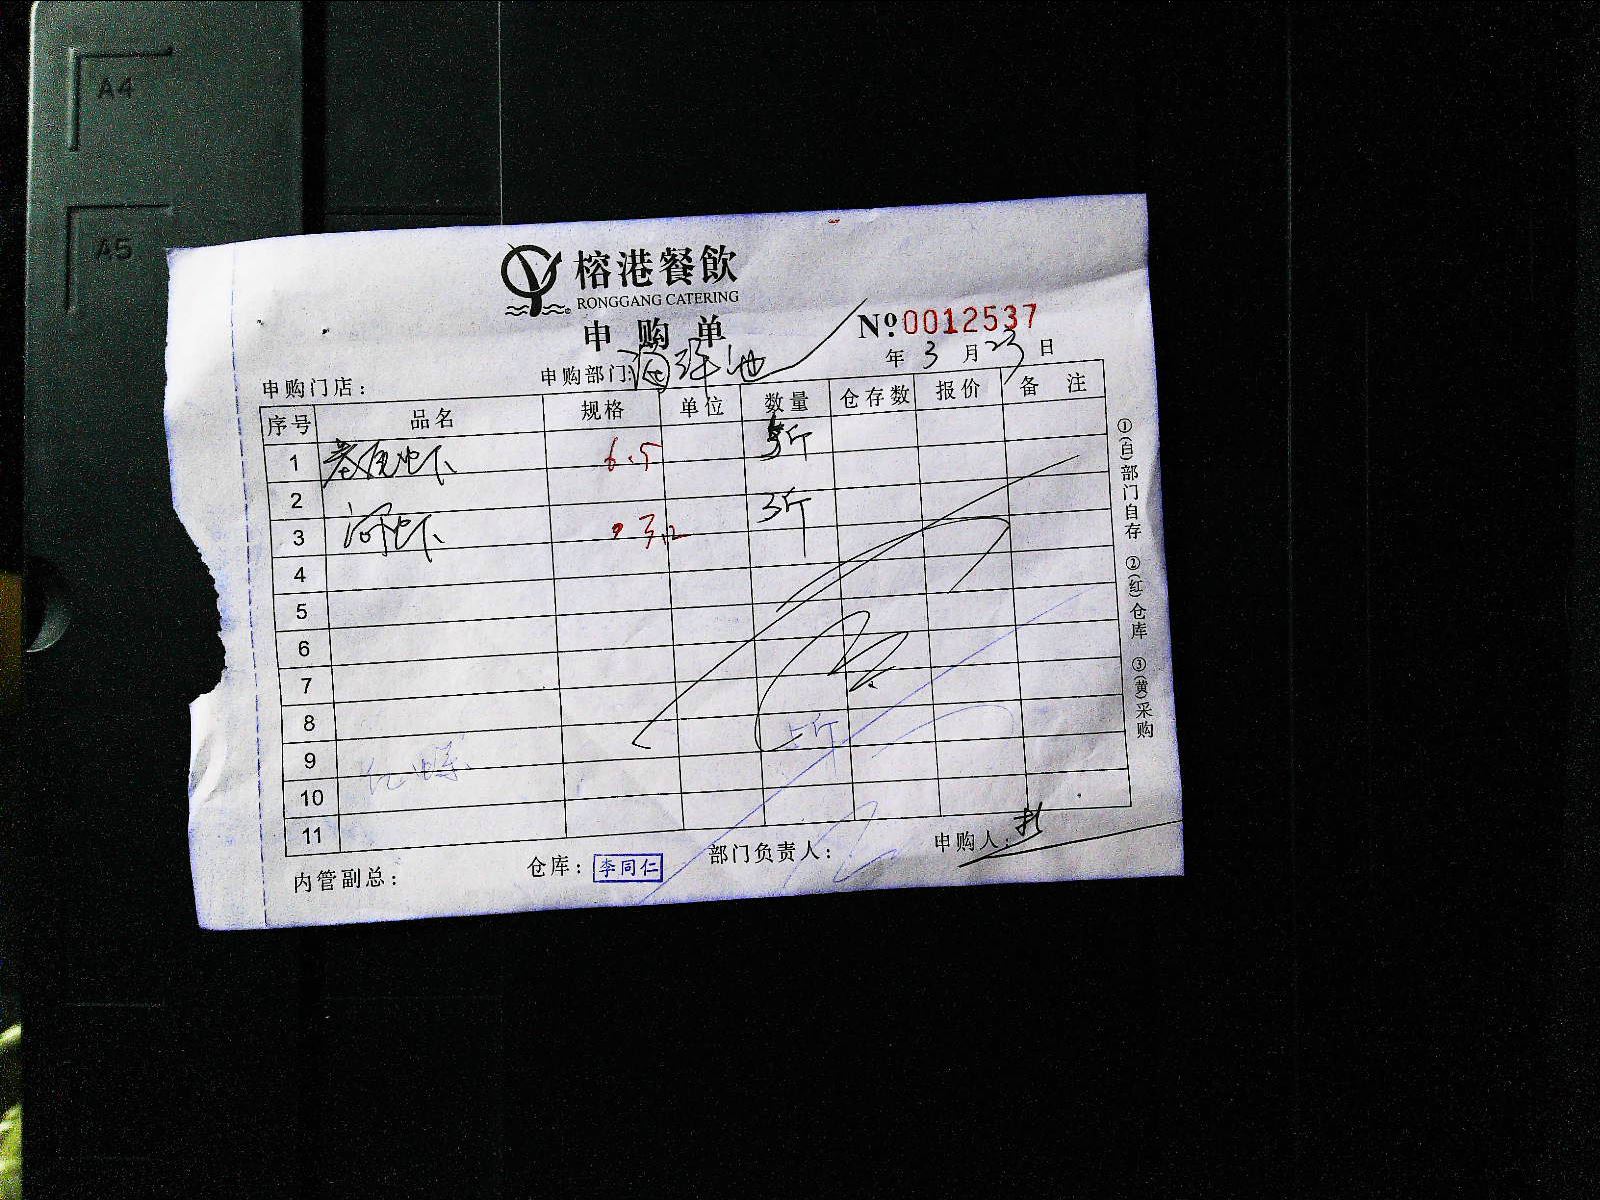 A4
A5
榕港餐飲
RONGGANG CATERING
申购单
№0012537
年 3 月 23 日
申购门店：
申购部门：海鲜池
序号 品名 规格 单位 数量 仓存数 报价 备注
1 基围虾 6.5 5斤
2
3 河虾 3.2 3斤
4
5
6
7
8
9
10
11
内管副总：
仓库：李同仁
部门负责人：
申购人：
①(白)部门自存 ②(红)仓库 ③(黄)采购